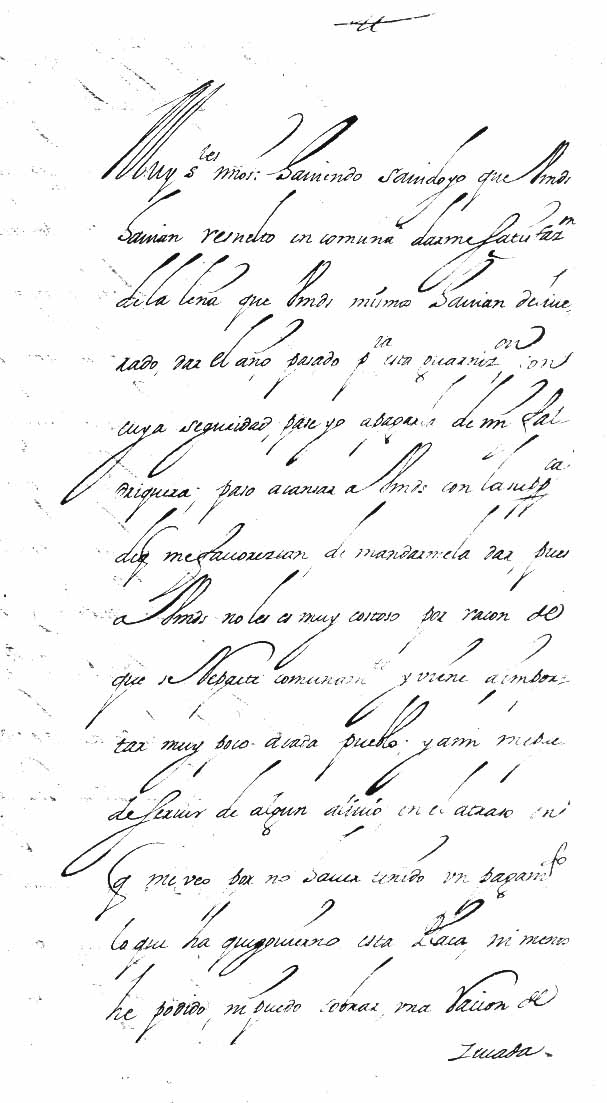 Muy s.res mios: Haviendo savido yo que Vmds
havian resuelto en comun darme satisfaz.n
de la leña que Vmds mismos havian deiue,
rado, dar el año pasado p.ra esta guarniz.on, con
cuya seguridad, pase yo apagarla de mi fal
driquera; paso acansar a Vmds con la supp.ca
deq me favorezcan, de mandarmela dar, pues
a Vmds no les es muy costoso por racon de
que se Reparte comunam.te y viene aimpor=
tar muy poco. acada pueblo; y ami mepue
de servir de algun alivio, en el atraso en
q me veo por no haver tenido un pagam.to
lo que ha quegovierno esta Plaça, ni menos
he podido, ni puedo cobrar, una Racion de
zevada-